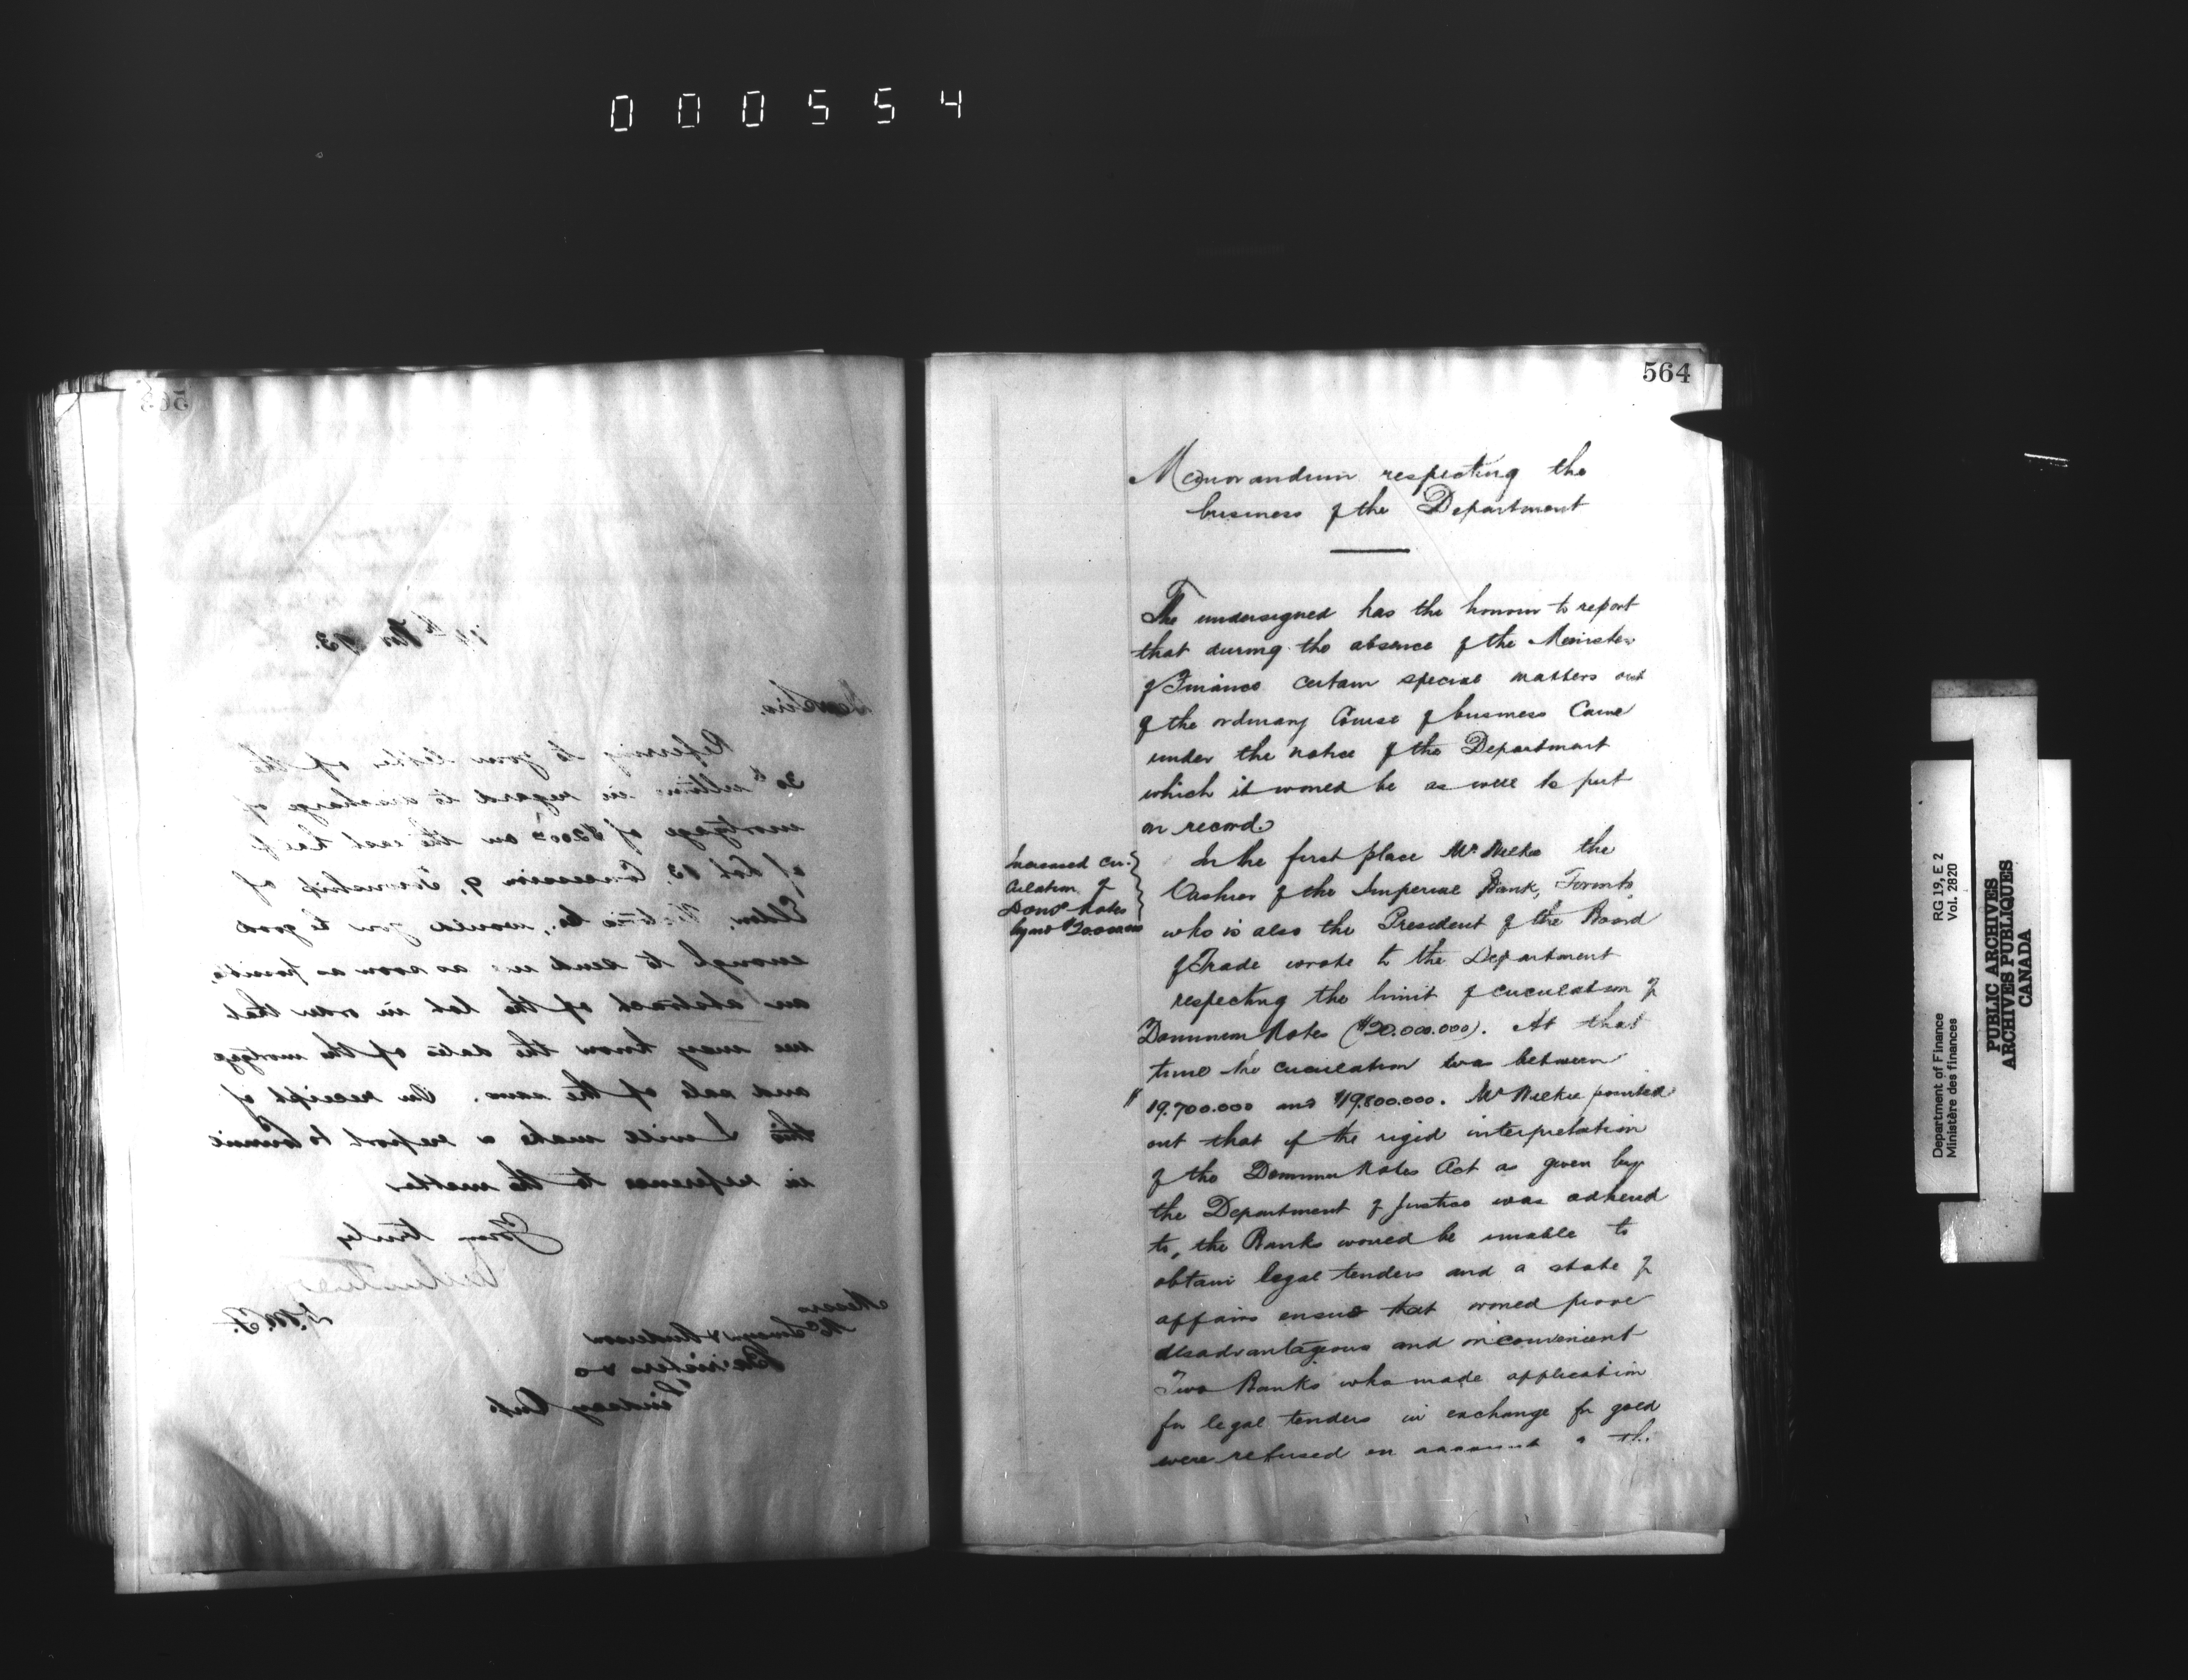 000554
563
14th Nov 93.
Dear Sirs.
Referring to your letter of the
30th ultimo in regard to discharge of
mortgage of $200 on the east half
of Lot 13, Concession 9, Township of
Eldon, Victoria Co., would you be good
enough to send me as soon as possible,
an abstract of the lot in order that
we may know the date of the mortgage
and sale of the same. On receipt of
this I will make a report to Council
in reference to the matter
Yours truly
D.M.F.
Messrs
McSweyn & Anderson
Barristers &c
Lindsay Ont.
564
Memorandum respecting the
business of the Department
The undersigned has the honour to report
that during the absence of the Minister
of Finance certain special matters out
of the ordinary Course of business Came
under the notice of the Department
which it would be as well to put
on record.
Increased Cir-
culation of
Domn Notes
beyond $20.000.000
In the first place Mr Wilkie the
Cashier of the Imperial Bank, Toronto
who is also the President of the Board
of Trade wrote to the Department
respecting the limit of circulation of
Dominion Notes ($20.000.000). At that
time the circulation was between
$19.700.000 and $19.800.000. Mr Wilkie pointed
out that if the rigid interpretation
of the Dominion Notes Act as given by
the Department of Justice was adhered
to, the Banks would be unable to
obtain legal tenders and a state of
affairs ensue that would prove
disadvantageous and inconvenient
Two Banks who made application
for legal tenders in exchange for gold
were refused on account of the
Department of Finance
Ministère des finances
RG 19, E 2
Vol. 2820
PUBLIC ARCHIVES
ARCHIVES PUBLIQUES
CANADA